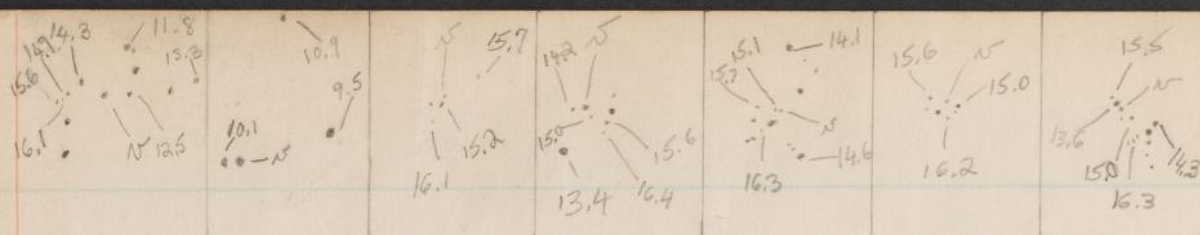 14.9 14.3 11.8
15.6 13.3
16.1 v 12.5
10.9
9.5
10.1 v
v 15.7
15.2
16.1
14.2 v
15.0 15.6
13.4 16.4
15.1 14.1
15.7 v
14.6
16.3
15.6 v
15.0
16.2
15.5
v
13.6
15.0 14.3
16.3